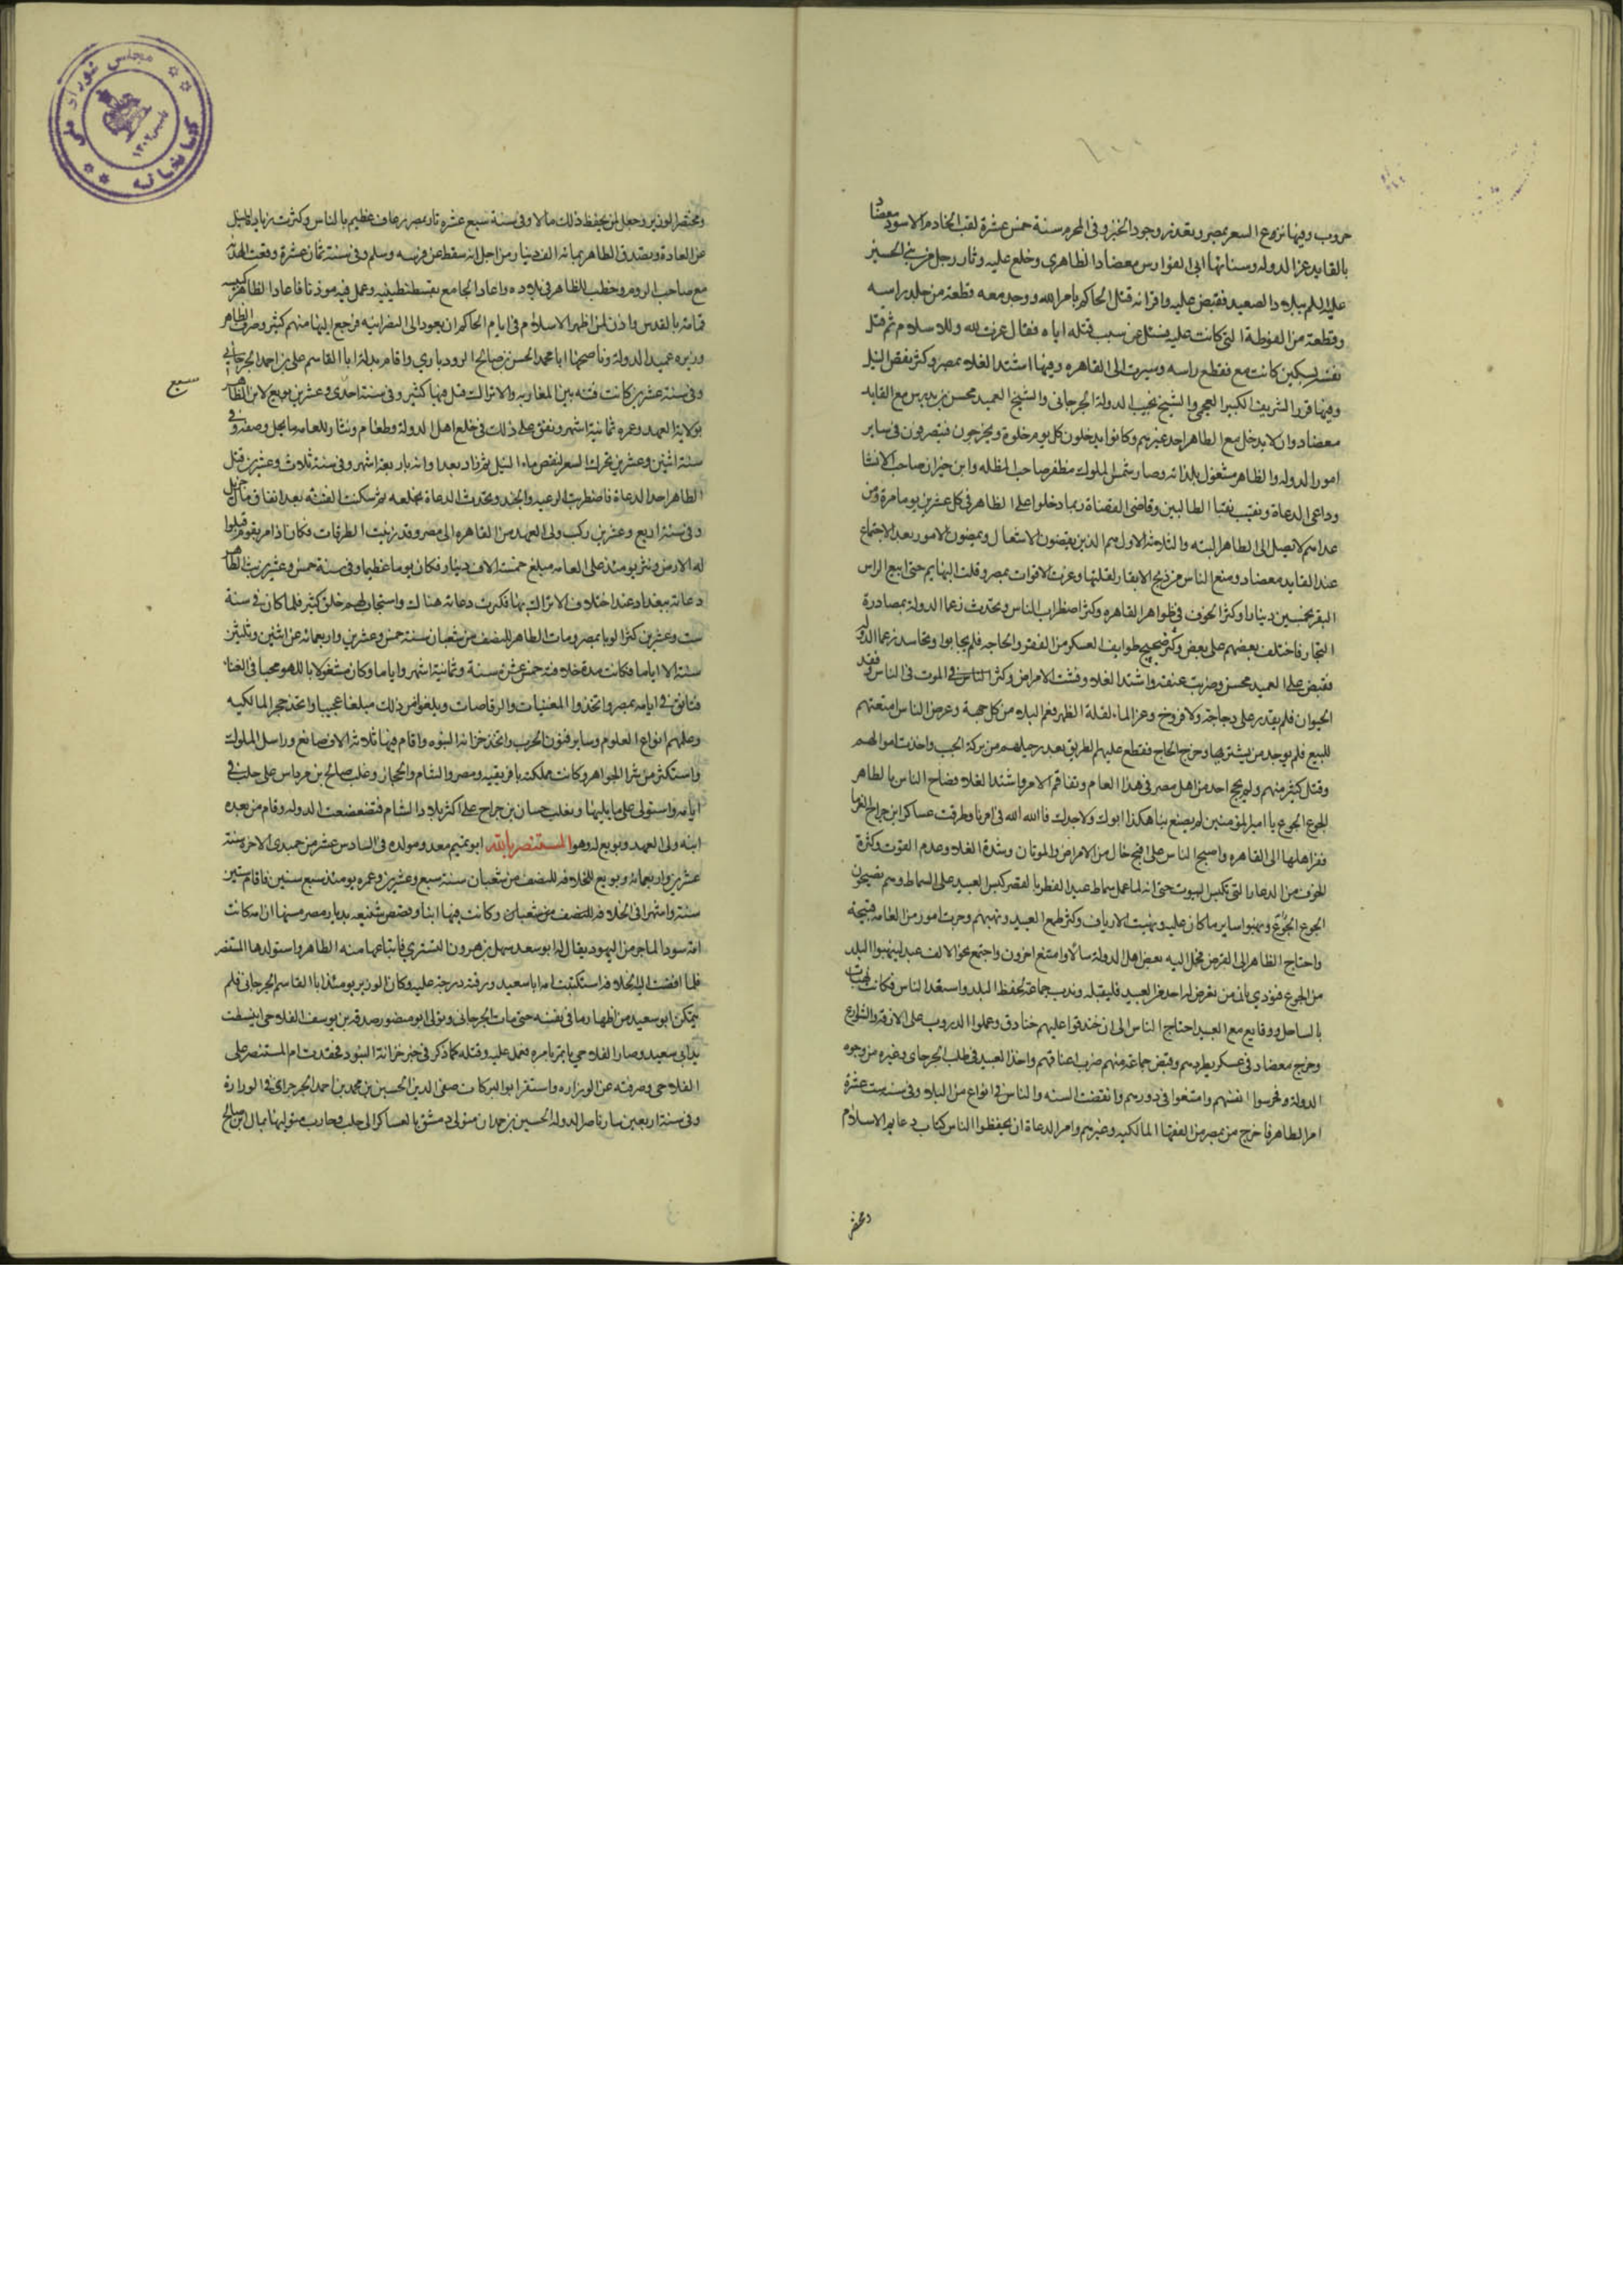 حروب وفيها نزع السعر بمصر وتعذر وجود الخبز وفى المحرم سنة خمس عشرة لقب الخادم الاسود معضاد
بالقايد عز الدولة وسنانها ابى الفوارس معضاد الظاهرى وخلع عليه وثار رجل من بنى الحسين
عليه السلم ببلاد الصعيد فقبض عليه واقر انه قتل الحاكم بامر الله ووجد معه قطعة من جلد راسه
وقطعة من الفوطة التى كانت عليه فسئل عن سبب قتله اياه فقال غرت لله وللاسلام ثم قتل
نفسه بسكين كانت معه فقطع راسه وسيرت الى القاهره وفيها اشتد الغلاء بمصر وكثر نقص النيل
وفيها قرر الشريف الكبير العجمى والشيخ نجيب الدولة الجرجانى والشيخ العميد محسن بن بدوس مع القايد
معضاد وان لا يدخل مع الظاهر احد غيرهم وكانوا يدخلون كل يوم خلوة ويخرجون فيتصرفون فى ساير
امور الدولة والظاهر مشغول بلذاته وصار شمس الملوك مظفر صاحب المظله وابن خيران صاحب الانشا
وداعى الدعاة ونقيب نقبا الطالبيين وقاضى القضاة ربما دخلوا على الظاهر فى كل عشرين يوما مرة ومن
عداهم لا يصل الى الظاهر البته والثلاثة الاول هم الذين يقضون الاشغال ويمضون الامور بعد الاجتماع
عند القايد معضاد ومنع الناس من ذبح الابقار لقلتها وعزت الاقوات بمصر وقلت البهايم حتى ابيع الراس
البقر بخمسين دينارا وكثر الخوف فى ظواهر القاهره وكثر اضطراب الناس وتحدث زعما الدولة بمصادرة
التجار فاختلف بعضهم على بعض وكثر ضجيج طوايف العسكر من الفقر والحاجة فلم يجابوا وتحاسد زعما الدولة
فقبض على العميد محسن وضربت عنقه واشتد الغلاء وفشت الامراض وكثر الموت فى الناس وفقد
الحيوان فلم يقدر على دجاجة ولا فروخ وعز الماء لقلة الظهر فعم البلاء من كل جهة وعرض الناس امتعتهم
للبيع فلم يوجد من يشتريها وخرج الحاج فقطع عليهم الطريق بعد رحيلهم من بركة الجب واخذت اموالهم
وقتل كثير منهم ولم يحج احد من اهل مصر فى هذا العام وتفاقم الامر واشتد الغلاء فصاح الناس بالظاهر
الجوع الجوع يا امير المؤمنين لم يصنع بنا هكذا ابوك ولا جدك فالله الله فى امرنا وطرقت عساكر ابن جراح الفرما
ففر اهلها الى القاهره واصبح الناس على اقبح حال من الامراض والموتان وشدة الغلاء وعدم القوت وكثرة
الخوف من الدعار التى تكبس البيوت حتى انه لما عمل سماط عيد الفطر بالقصر كبس العبيد على السماط وهم يصيحون
الجوع الجوع ونهبوا ساير ما كان عليه ونهبت الارياف وكثر طمع العبيد ونهبهم وجرت امور من العامه قبيحة
واحتاج الظاهر الى القرض فحمل اليه بعض اهل الدولة مالا وامتنع اخرون واجتمع نحو الالف عبد لينهبوا البلد
من الجوع فنودى بان من تعرض له احد من العبيد فليقتله وندب جماعة لحفظ البلد واستعد الناس فكانت نهبات
بالساحل ووقايع مع العبيد احتاج الناس الى ان خندقوا عليهم خنادق وعملوا الدروب على الازقة والشوارع
وخرج معضاد فى عسكر فطردهم وقبض جماعة منهم ضرب اعناقهم واخذ العبيد فى طلب الجرجانى وغيره من وجوه
الدولة وحرسوا انفسهم وامتنعوا فى دورهم وانقضت السنه والناس فى انواع من البلاء وفى سنة ست عشرة
امر الظاهر فاخرج من بمصر من الفقها المالكيه وغيرهم وامر الدعاة ان يحفظوا الناس كتاب دعايم الاسلام
ومختصر
ومختصر الوزير وجعل لمن يحفظ ذلك مالا وفى سنة سبع عشره ثار بمصر رعاف عظيم بالناس وكثرت زيادة النيل
عن العادة وتصدق الظاهر بمائة الف دينار من اجل انه سقط عن فرسه وسلم وفى سنة ثمان عشرة وقعت الهدنة
مع صاحب الروم وخطب للظاهر فى بلاده واعاد الجامع بقسطنطينيه وعمل فيه موذنا فاعاد الظاهر كنيسه
قمامة بالقدس واذن لمن اظهر الاسلام فى ايام الحاكم ان يعود الى النصرانيه فرجع اليها منهم كثير وصرف الظاهر
وزيره عميد الدولة وناصحها ابا محمد الحسن بن صالح الرودبارى واقام بدله ابا القاسم على بن احمد الجرجانى
وفى سنة عشرين كانت فتنه بين المغاربه والاتراك قتل فيها كثير وفى سنة احدى وعشرين بويع لابن الظاهر
سبع
بولاية العهد وعمره ثمانية اشهر وانفق على ذلك فى خلع اهل الدولة وطعام ونثار للعامه ما يجل وصفه وفى
سنة اثنين وعشرين تحرك السعر لنقص ماء النيل ثم زاد بعد اوانه باربعة اشهر وفى سنة ثلاث وعشرين قتل
الظاهر احد الدعاة فاضطربت الرعيه والجند وتحدث الدعاة بخلعه ثم سكنت الفتنه بعد انفاق مال جزيل
وفى سنة اربع وعشرين ركب ولى العهد من القاهره الى مصر وقد زينت الطرقات فكان اذا مر بقوم قبلوا
له الارض ونثر يومئذ على العامه مبلغ خمسة الاف دينار فكان يوما عظيما وفى سنة خمس وعشرين بث الظاهر
دعاته ببغداد عند اختلاف الاتراك بها فكثرت دعاته هناك واستجاب لهم خلق كثير فلما كان فى سنة
ست وعشرين كثر الوبا بمصر ومات الظاهر للنصف من شعبان سنة خمس وعشرين واربعمائة عن اثنين وثلثين
سنة الا اياما فكانت مدة خلافته خمس عشرة سنة وثمانية اشهر واياما وكان مشغولا باللهو محبا فى الغناء
فتانق فى ايامه بمصر واتخذوا المغنيات والرقاصات وبلغوا من ذلك مبلغا عجيبا واتخذ حجر المماليك
وعلمهم انواع العلوم وساير فنون الحرب واتخذ خزانة البنود واقام فيها ثلاثة الاف صانع وراسل الملوك
واستكثر من شرا الجواهر وكانت مملكته بافريقيه ومصر والشام والحجاز وغلب صالح بن مرداس على حلب فى
ايامه واستولى على ما يليها وتغلب حسان بن جراح على اكثر بلاد الشام فتضعضعت الدوله وقام من بعده
ابنه ولى العهد وبويع له وهو المستنصر بالله ابو تميم معد ومولده فى السادس عشر من جمدى الاخرة سنة
عشرين واربعمائه وبويع بالخلافه للنصف من شعبان سنة سبع وعشرين وعمره يومئذ سبع سنين فاقام ستين
سنة واشهرا فى الخلافه وكانت فيها انباء وقصص شنيعه بديار مصر منها ان امه كانت
امة سوداء لتاجر من اليهود يقال له ابو سعد سهل بن هرون التسترى فابتاعها منه الظاهر واستولدها المستنصر
فلما افضت اليه الخلافه استكتبت امه ابا سعيد ورقته درجة عليه وكان الوزير يومئذ ابا القاسم الجرجانى فلم
يتمكن ابو سعيد من اظهار ما فى نفسه حتى مات الجرجانى وتولى ابو منصور صدقه بن يوسف الفلاحى انبسطت
يد ابى سعيد وصار الفلاحى ياتمر بامره فعمل عليه وقتله كما ذكر فى خبر خزانة البنود فحقدت ام المستنصر على
الفلاحى وصرفته عن الوزاره واستقر ابو البركات صفى الدين الحسين بن محمد بن احمد الجرجراى فى الوزارة
وفى سنة اربعين سار ناصر الدولة الحسين بن حمدان متولى دمشق بالعساكر الى حلب وحارب متوليها ثمال ابن صالح
مجلس شوراى ملى
كتابخانه